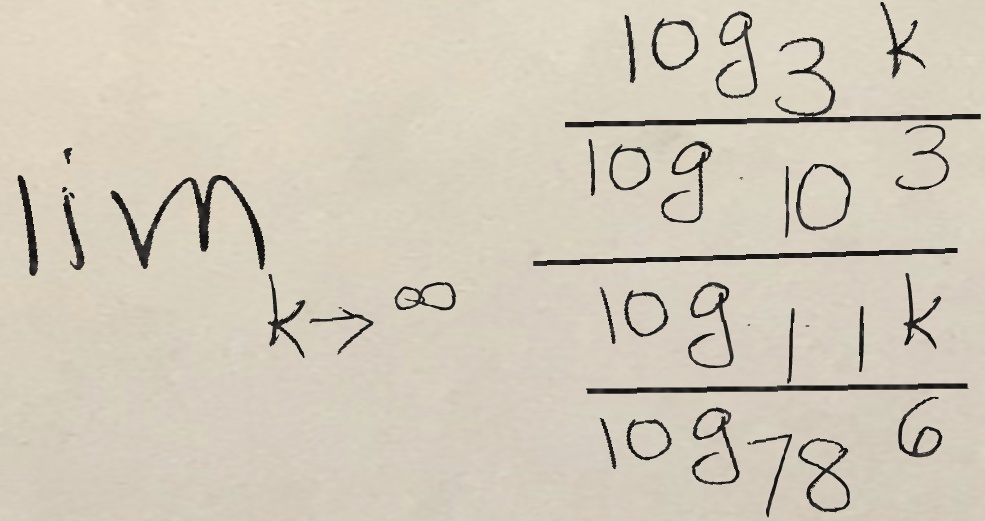 lim k→∞
log₃ k
log₁₀ 3
log₁₁ k
log₇₈ 6